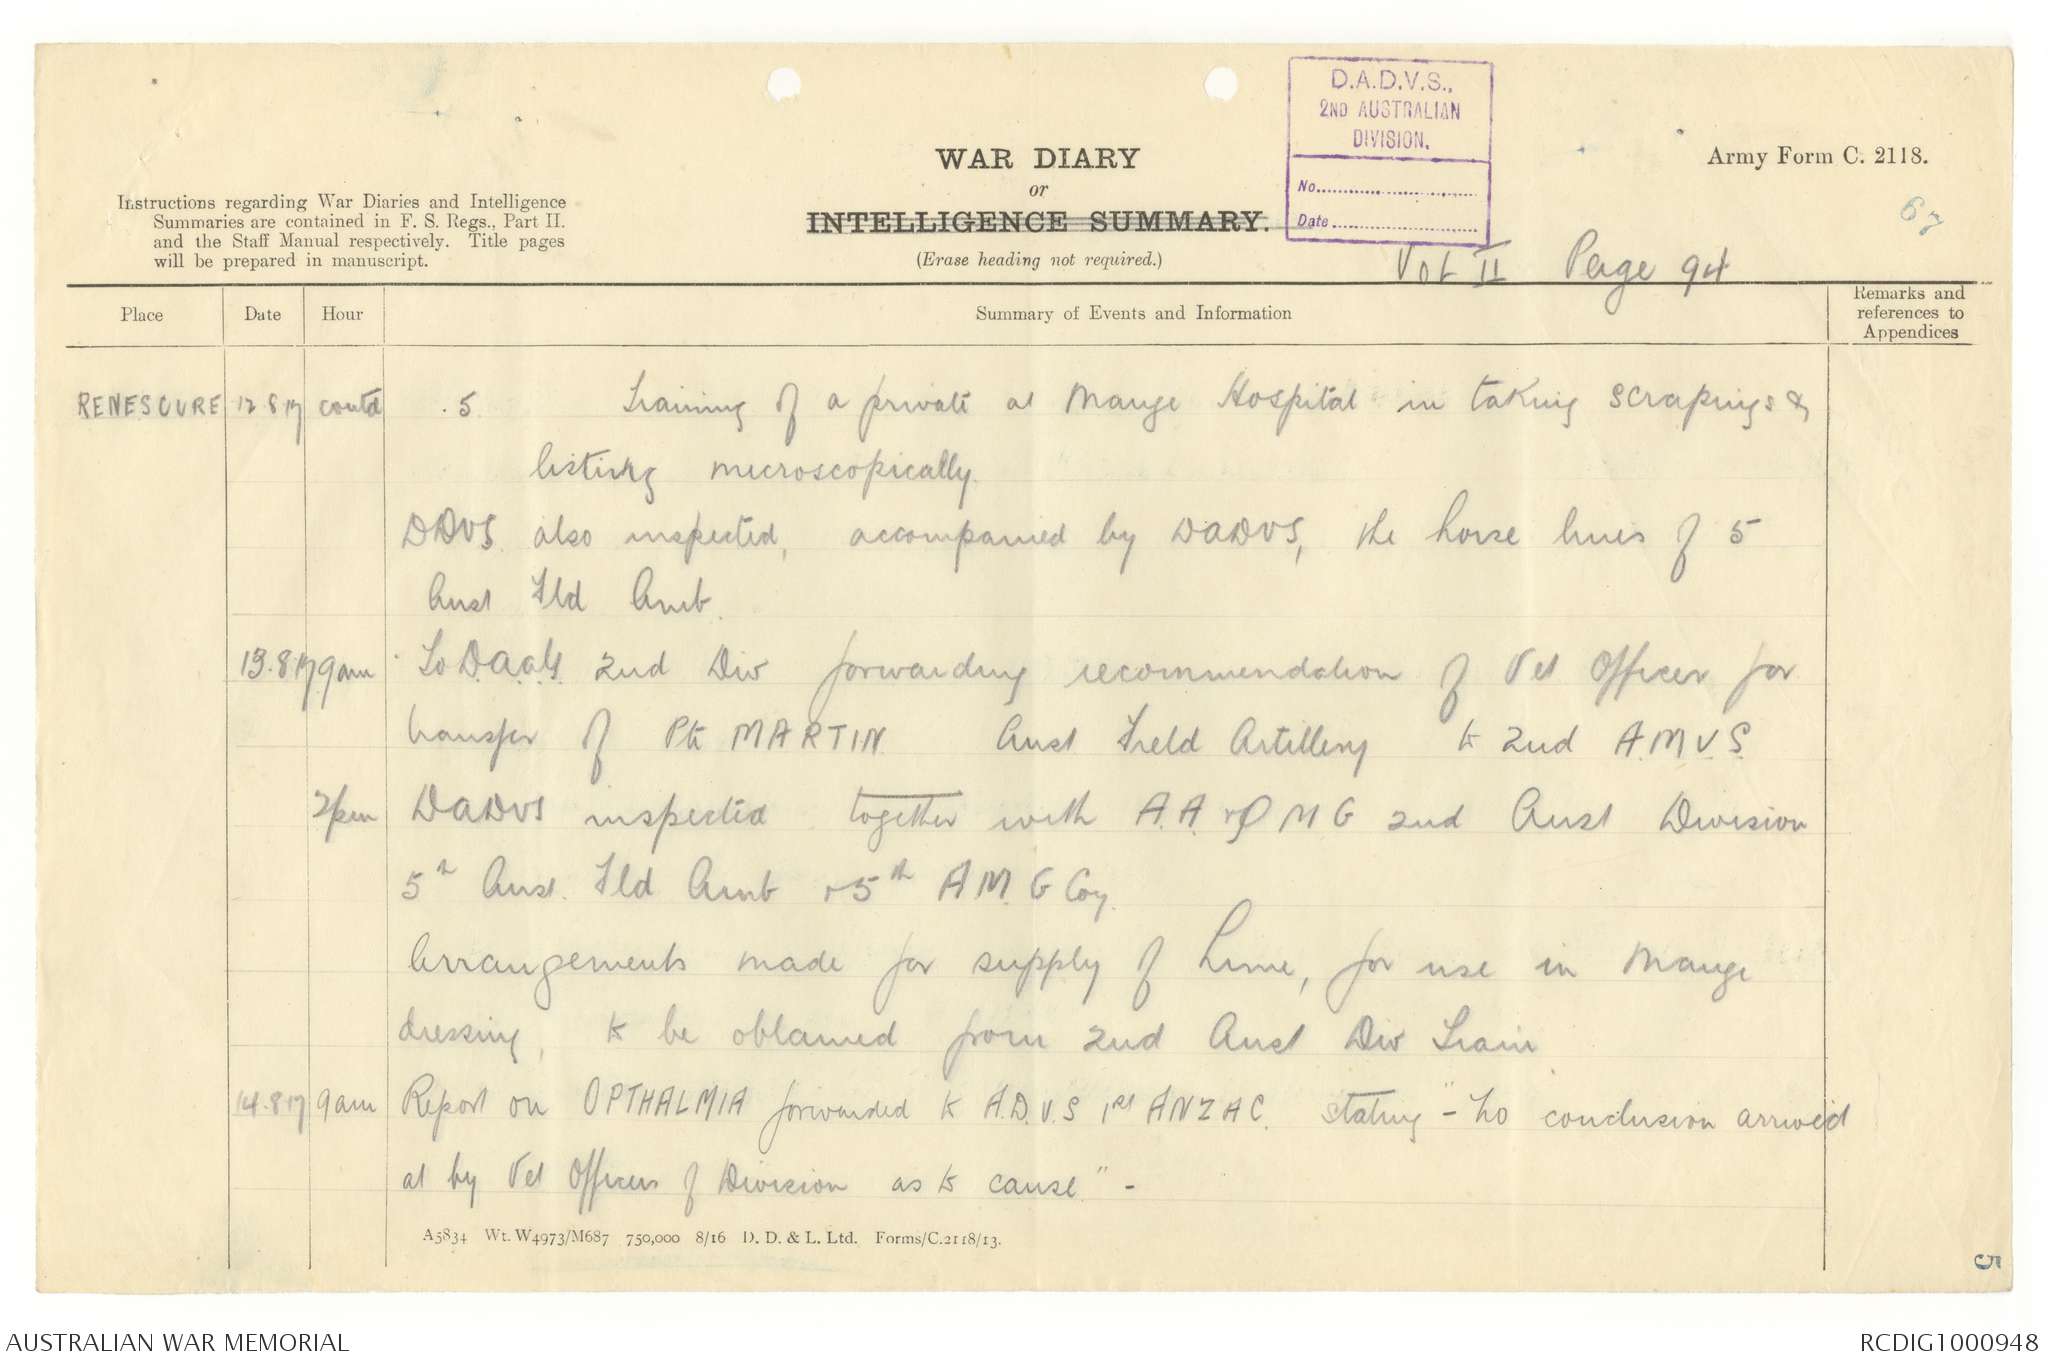 D.A.D.V.S.,
2ND AUSTRALIAN
DIVISION.
No.
Date
WAR DIARY
or
INTELLIGENCE SUMMARY.
(Erase heading not required.)
Army Form C. 2118.
Instructions regarding War Diaries and Intelligence
Summaries are contained in F. S. Regs., Part II.
and the Staff Manual respectively. Title pages
will be prepared in manuscript.
67
Vol II Page 94
Place Date Hour Summary of Events and Information Remarks and references to Appendices
RENESCURE 12.8.17 contd .5 Training of a private at Mange Hospital in taking scrapings &
testing microscopically.
DDVS also inspected, accompanied by DADVS, the horse lines of 5
Aust Fld Amb.
13.8.17 9am To D.A.A.G. 2nd Div forwarding recommendation of Vet Officer for
transfer of Pte MARTIN Aust Field Artillery to 2nd A.M.V.S.
2pm DADVS inspected together with A.A. & Q M G 2nd Aust Division
5th Aust. Fld Amb & 5th A M. G Coy.
Arrangements made for supply of Lime, for use in Mange
dressing, to be obtained from 2nd Aust Div Train
14.8.17 9am Report on OPTHALMIA forwarded to A.D.V.S 1st ANZAC. stating "- no conclusion arrived
at by Vet Officers of Division as to cause" -
A5834 Wt. W4973/M687 750,000 8/16 D. D. & L. Ltd. Forms/C.2118/13.
5
AUSTRALIAN WAR MEMORIAL
RCDIG1000948